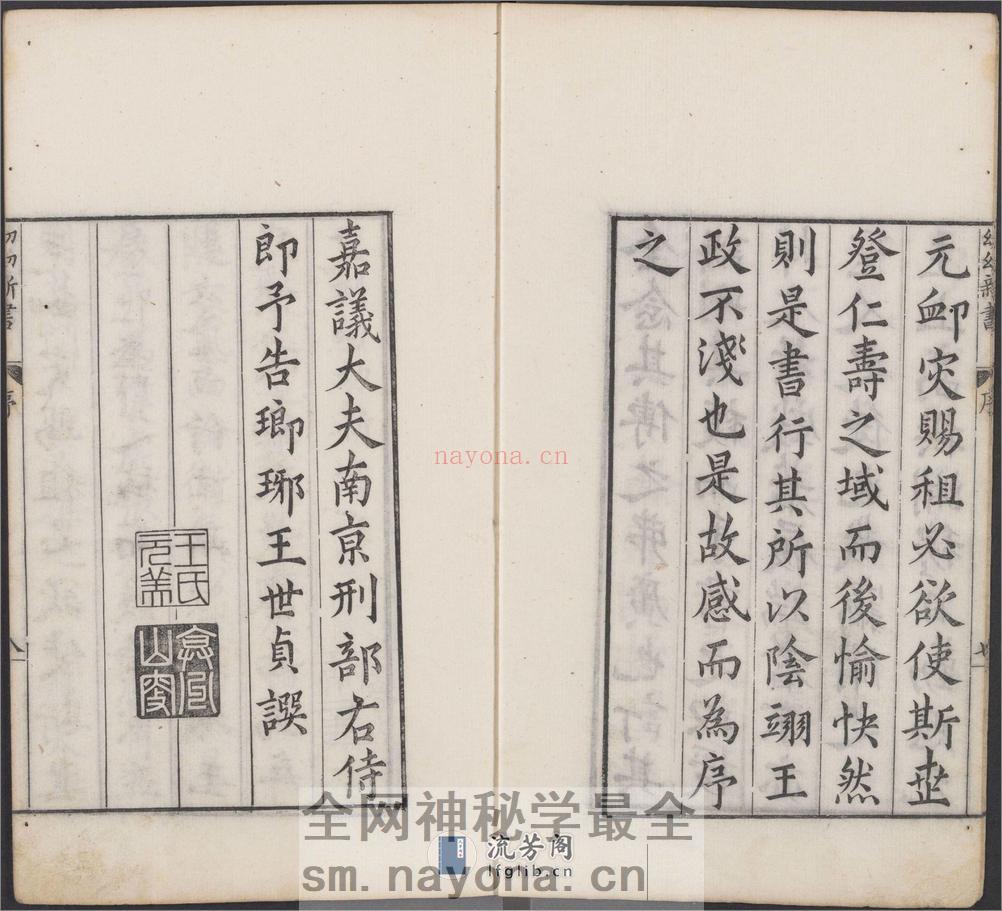 幼幼新書
序
七
元卹灾賜租必欲使斯世
登仁壽之域而後愉快然
則是書行其所以陰翊王
政不淺也是故感而為序
之
嘉議大夫南京刑部右侍
郎予告瑯琊王世貞譔
王氏
元美
幼幼新書
序
八
nayona.cn
全网神秘学最全
流芳阁
lfglib.cn
sm.nayona.cn